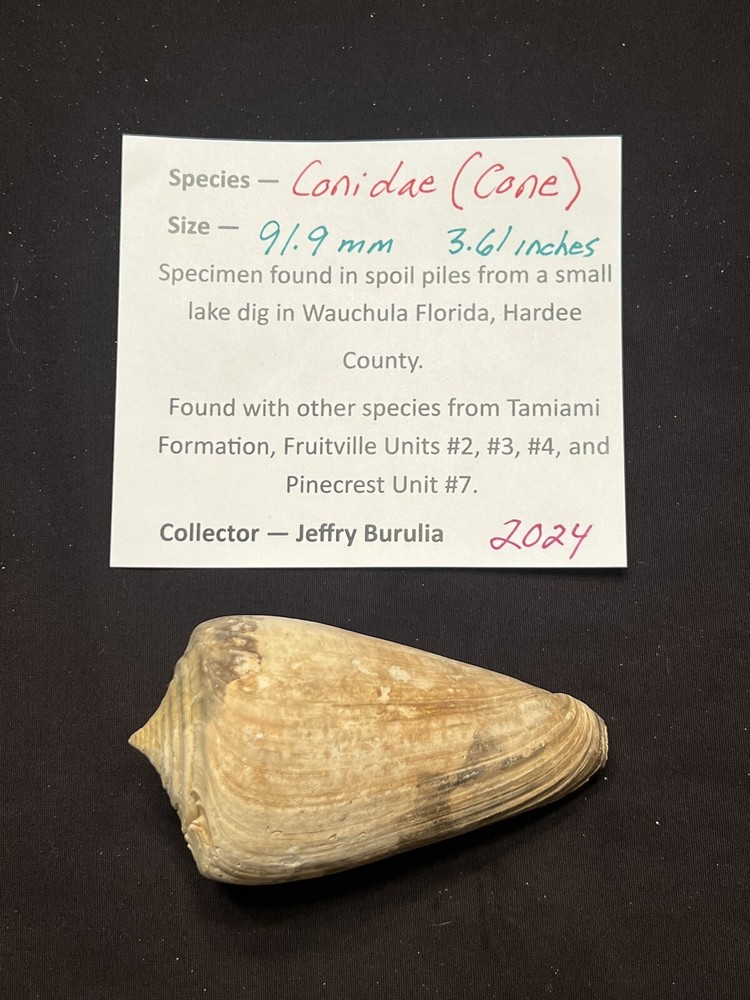 Species — Conidae (Cone)
Size — 91.9 mm 3.61 inches
Specimen found in spoil piles from a small
lake dig in Wauchula Florida, Hardee
County.
Found with other species from Tamiami
Formation, Fruitville Units #2, #3, #4, and
Pinecrest Unit #7.
Collector — Jeffry Burulia 2024